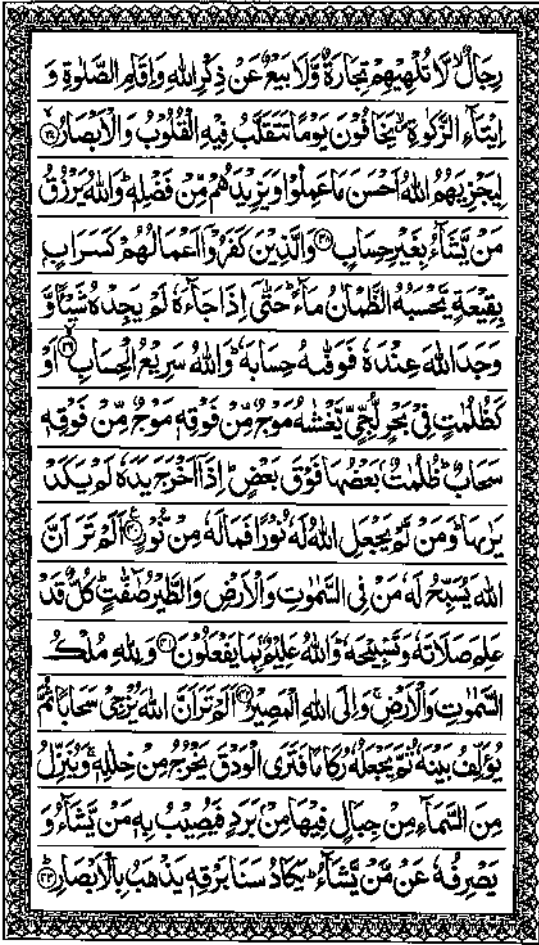 رِجَالٌ ۙ لَّا تُلْهِيْهِمْ تِجَارَةٌ وَّلَا بَيْعٌ عَنْ ذِكْرِ اللّٰهِ وَاِقَامِ الصَّلٰوةِ وَ
اِيْتَآءِ الزَّكٰوةِ ۙ يَخَافُوْنَ يَوْمًا تَتَقَلَّبُ فِيْهِ الْقُلُوْبُ وَالْاَبْصَارُ ۙ‏﴿۳۷﴾
لِيَجْزِيَهُمُ اللّٰهُ اَحْسَنَ مَا عَمِلُوْا وَيَزِيْدَهُمْ مِّنْ فَضْلِهٖ ؕ وَاللّٰهُ يَرْزُقُ
مَنْ يَّشَآءُ بِغَيْرِ حِسَابٍ ﴿۳۸﴾ وَالَّذِيْنَ كَفَرُوْۤا اَعْمَالُهُمْ كَسَرَابٍۭ
بِقِيْعَةٍ يَّحْسَبُهُ الظَّمْاٰنُ مَآءً ؕ حَتّٰۤى اِذَا جَآءَهٗ لَمْ يَجِدْهُ شَيْـًٔا وَّ
وَجَدَ اللّٰهَ عِنْدَهٗ فَوَفّٰىهُ حِسَابَهٗ ؕ وَاللّٰهُ سَرِيْعُ الْحِسَابِ ۙ‏﴿۳۹﴾ اَوْ
كَظُلُمٰتٍ فِيْ بَحْرٍ لُّجِّيٍّ يَّغْشٰىهُ مَوْجٌ مِّنْ فَوْقِهٖ مَوْجٌ مِّنْ فَوْقِهٖ
سَحَابٌ ؕ ظُلُمٰتٌۢ بَعْضُهَا فَوْقَ بَعْضٍ ؕ اِذَاۤ اَخْرَجَ يَدَهٗ لَمْ يَكَدْ
يَرٰىهَا ؕ وَمَنْ لَّمْ يَجْعَلِ اللّٰهُ لَهٗ نُوْرًا فَمَا لَهٗ مِنْ نُّوْرٍ ﴿۴۰﴾ اَلَمْ تَرَ اَنَّ
اللّٰهَ يُسَبِّحُ لَهٗ مَنْ فِي السَّمٰوٰتِ وَالْاَرْضِ وَالطَّيْرُ صٰٓفّٰتٍ ؕ كُلٌّ قَدْ
عَلِمَ صَلَاتَهٗ وَتَسْبِيْحَهٗ ؕ وَاللّٰهُ عَلِيْمٌۢ بِمَا يَفْعَلُوْنَ ﴿۴۱﴾ وَلِلّٰهِ مُلْكُ
السَّمٰوٰتِ وَالْاَرْضِ ۚ وَاِلَى اللّٰهِ الْمَصِيْرُ ﴿۴۲﴾ اَلَمْ تَرَ اَنَّ اللّٰهَ يُزْجِيْ سَحَابًا ثُمَّ
يُؤَلِّفُ بَيْنَهٗ ثُمَّ يَجْعَلُهٗ رُكَامًا فَتَرَى الْوَدْقَ يَخْرُجُ مِنْ خِلٰلِهٖ ۚ وَيُنَزِّلُ
مِنَ السَّمَآءِ مِنْ جِبَالٍ فِيْهَا مِنْۢ بَرَدٍ فَيُصِيْبُ بِهٖ مَنْ يَّشَآءُ وَ
يَصْرِفُهٗ عَنْ مَّنْ يَّشَآءُ ؕ يَكَادُ سَنَا بَرْقِهٖ يَذْهَبُ بِالْاَبْصَارِ ؕ‏﴿۴۳﴾